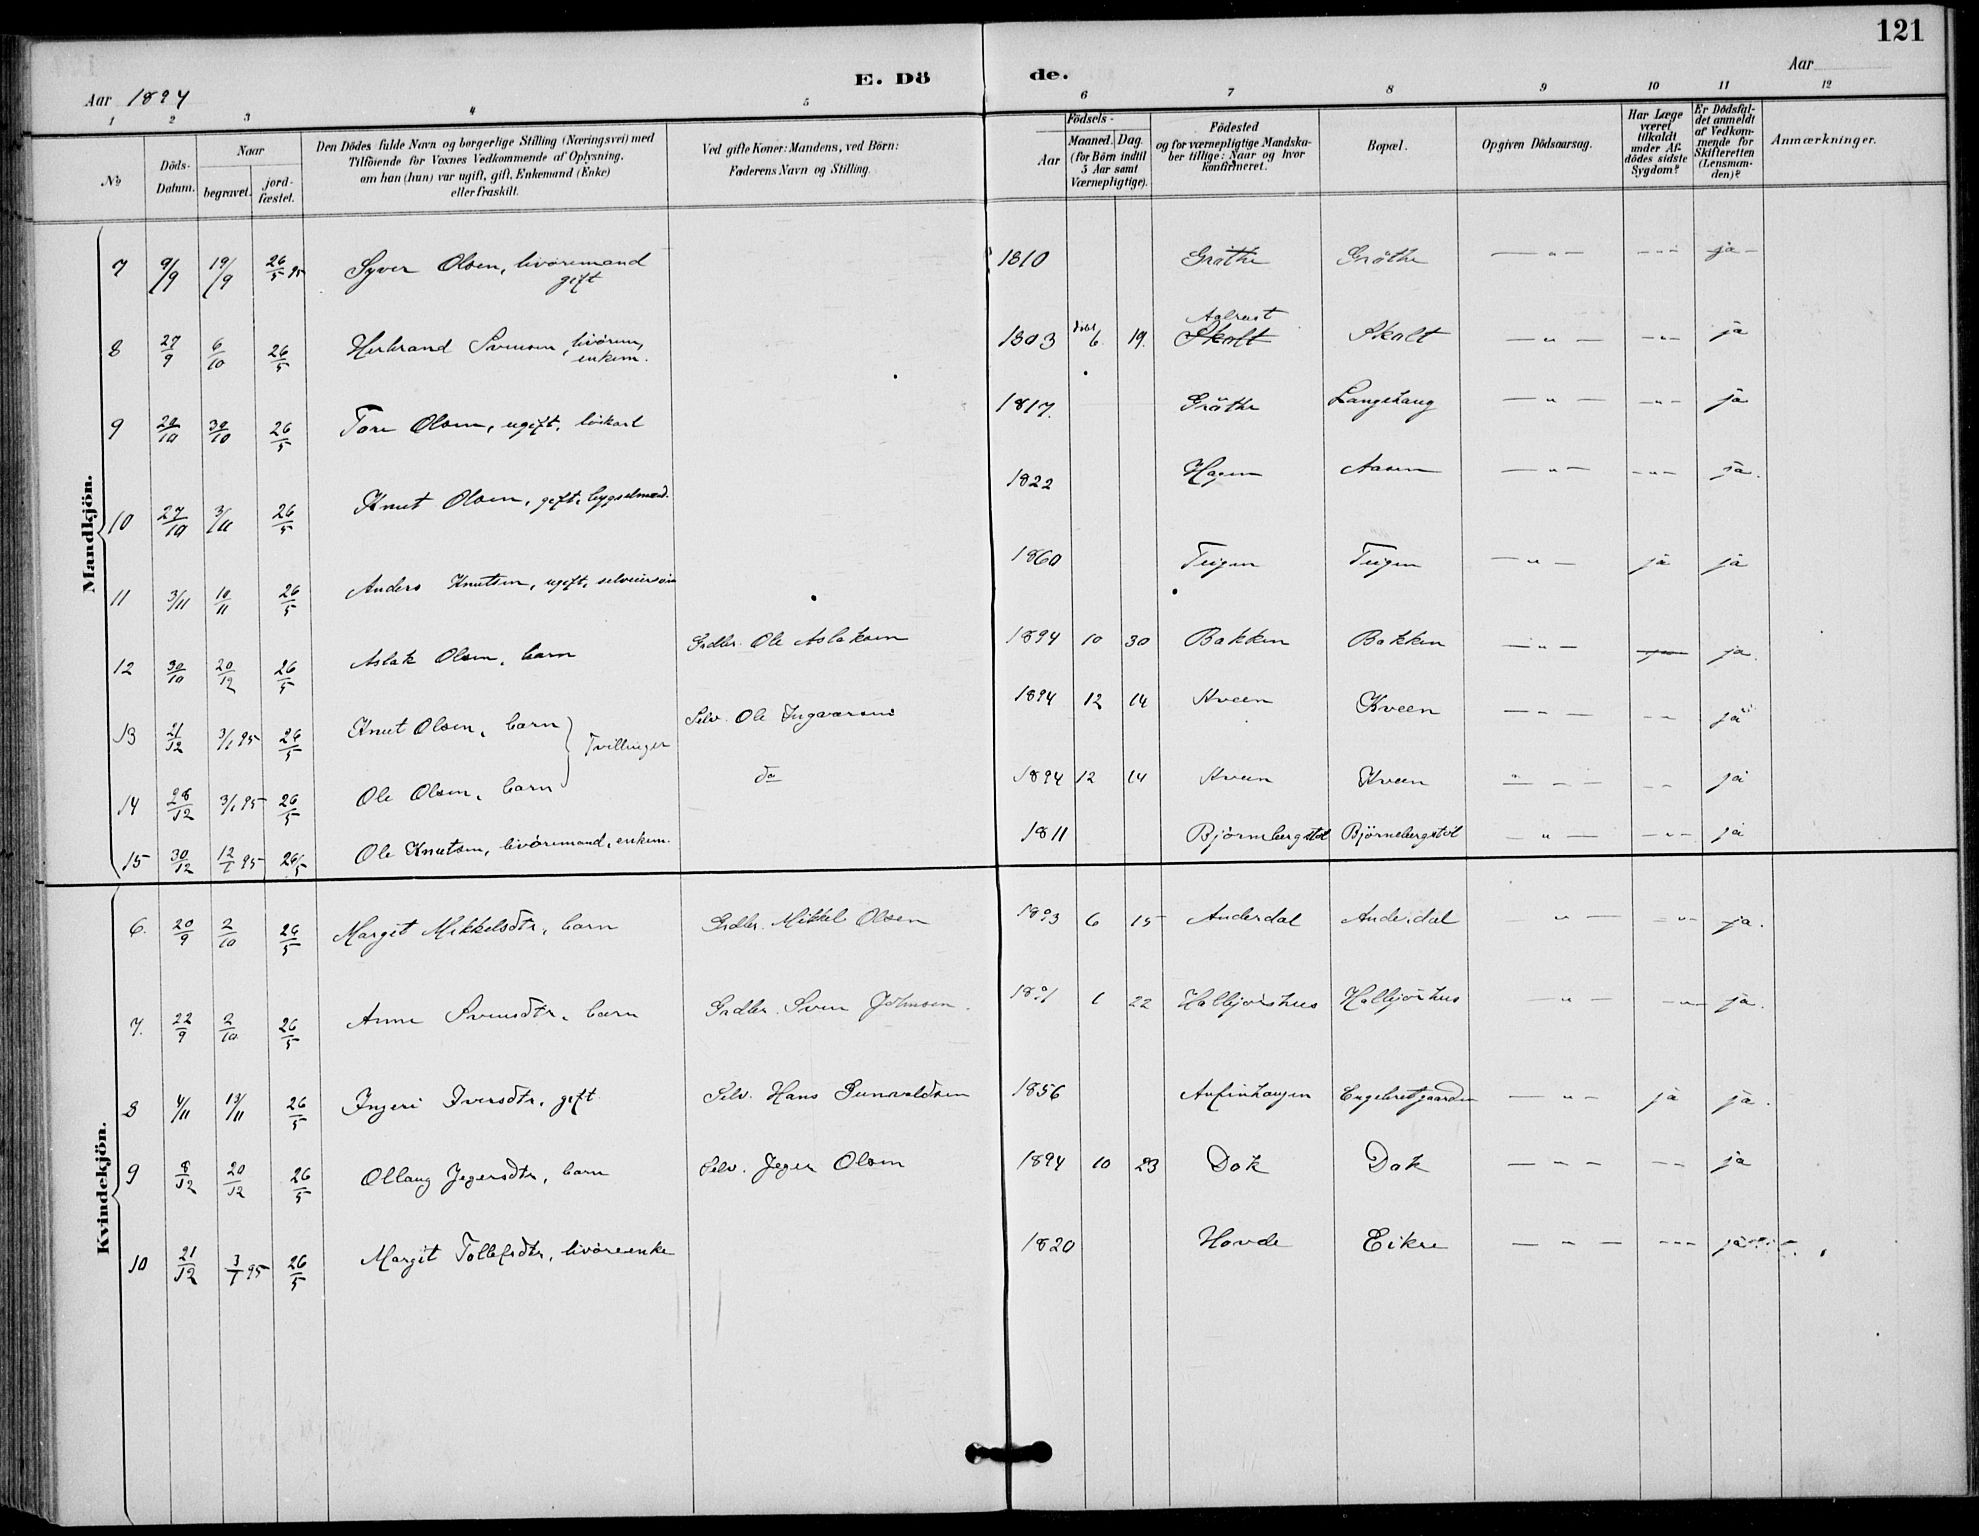 121
E. Dö de.
Aar 1894
Aar
1 2 3 4 5 6 7 8 9 10 11 12
No
Döds-Datum.
Naar
begravet.
jord-fæstet.
Den Dödes fulde Navn og borgerlige Stilling (Næringsvei) med
Tilföiende for Voxnes Vedkommende af Oplysning,
om han (hun) var ugift, gift, Enkemand (Enke)
eller fraskilt.
Ved gifte Koner: Mandens, ved Börn:
Faderens Navn og Stilling.
Födsels-
Aar
Maaned. Dag.
(for Börn indtil
5 Aar samt
Værnepligtige).
Födested
og for værnepligtige Mandska-
ber tillige: Naar og hvor
konfirmeret.
Bopæl.
Opgiven Dödsaarsag.
Har Læge
været
tilkaldt
under Af-
dödes sidste
Sygdom?
Er Dödsfal-
det anmeldt
af Vedkom-
mende for
Skifteretten
(Lensman-
den)?
Anmærkninger.
Mandkjön.
7 9/9 19/9 26/5 95 Syver Olsen, livöremand gift 1810 Gröthe Gröthe — " — — " — ja
8 27/9 6/10 26/5 Herbrand Svensen, livörem, enkem. 1803 döbt 6 19. Aalrust Skolt Skolt — " — — " — ja
9 26/10 30/10 26/5 Tore Olsen, ugift, löskarl 1817. Gröthe Langehaug — " — — " — ja
10 27/10 3/11 26/5 Knut Olsen, gift, bygselmand. 1822 Hagen Aasen — " — — " — ja.
11 3/11 10/11 26/5 Anders Knutsen, ugift, selveiersön 1860 Teigen Teigen — " — ja ja
12 30/10 20/12 26/5 Aslak Olsen, barn Grdbr. Ole Aslaksen 1894 10 30 Bakken Bakken — " — ja.
13 21/12 3/1 95 26/5 Knut Olsen, barn Tvillinger Selv. Ole Ingvarsen 1894 12 14 Kveen Kveen — " — — — ja
14 28/12 3/1 95 26/5 Ole Olsen, barn do 1894 12 14 Kveen Kveen — " — — — ja
15 30/12 12/1 95 26/5 Ole Knutsen, livöremand, enkem. 1811 Björnebergstöl Björnebergstöl — " — — " — ja
Kvindekjön.
6. 20/9 2/10 26/5 Margit Mikkelsdtr, barn Grdbr. Mikkel Olsen 1893 6 15 Anderdal Anderdal " — — " — ja.
7. 22/9 2/10 26/5 Anne Svensdtr, barn Grdbr. Sven Johnsen. 1891 1 22 Halbjörhus Halbjörhus — " — — " — ja.
8 4/11 13/11 26/5 Ingeri Iversdtr, gift Selv. Hans Gunvaldsen 1856 Anfinhaugen Engebretgaarden — " — ja ja.
9 8/12 20/12 26/5 Ollaug Jegersdtr, barn Selv. Jeger Olsen 1894 10 23 Dok Dok — " — — — ja
10 21/12 3/1 95 26/5 Margit Tollefsdtr, livöreenke 1820 Hovde Eikre — " — — " — ja